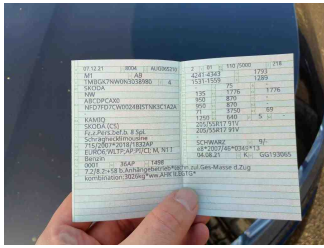 07.12.21 8004 AUG285210
M1 AA
TMBGK7NW0N3038980 4
SKODA
NW
ABCDPCAX0
KAMIQ
SKODA (CS)
Fz.z.Pers.bef.b. 8 Spl.
Schräghecklimousine
715/2007*2018/1832AP
EURO6;WLTP;AP:PI/CI; M, N1 I
Benzin
0001 36AP 1498
7.2/8.2:+58 b.Anhängebetrieb*techn.zul.Ges-Masse d.Zug
kombination:3026kg*ww.AHK lt.EGTG*
2 01 110/5000 218
4241-4343 1793
1531-1559 1289
75
135 1776 1776
950 870
950 870
71 3750 69
1250 640 5
205/55R17 91V
205/55R17 91V
SCHWARZ 9/-
e8*2007/46*0345*13
04.08.21 K GG193065